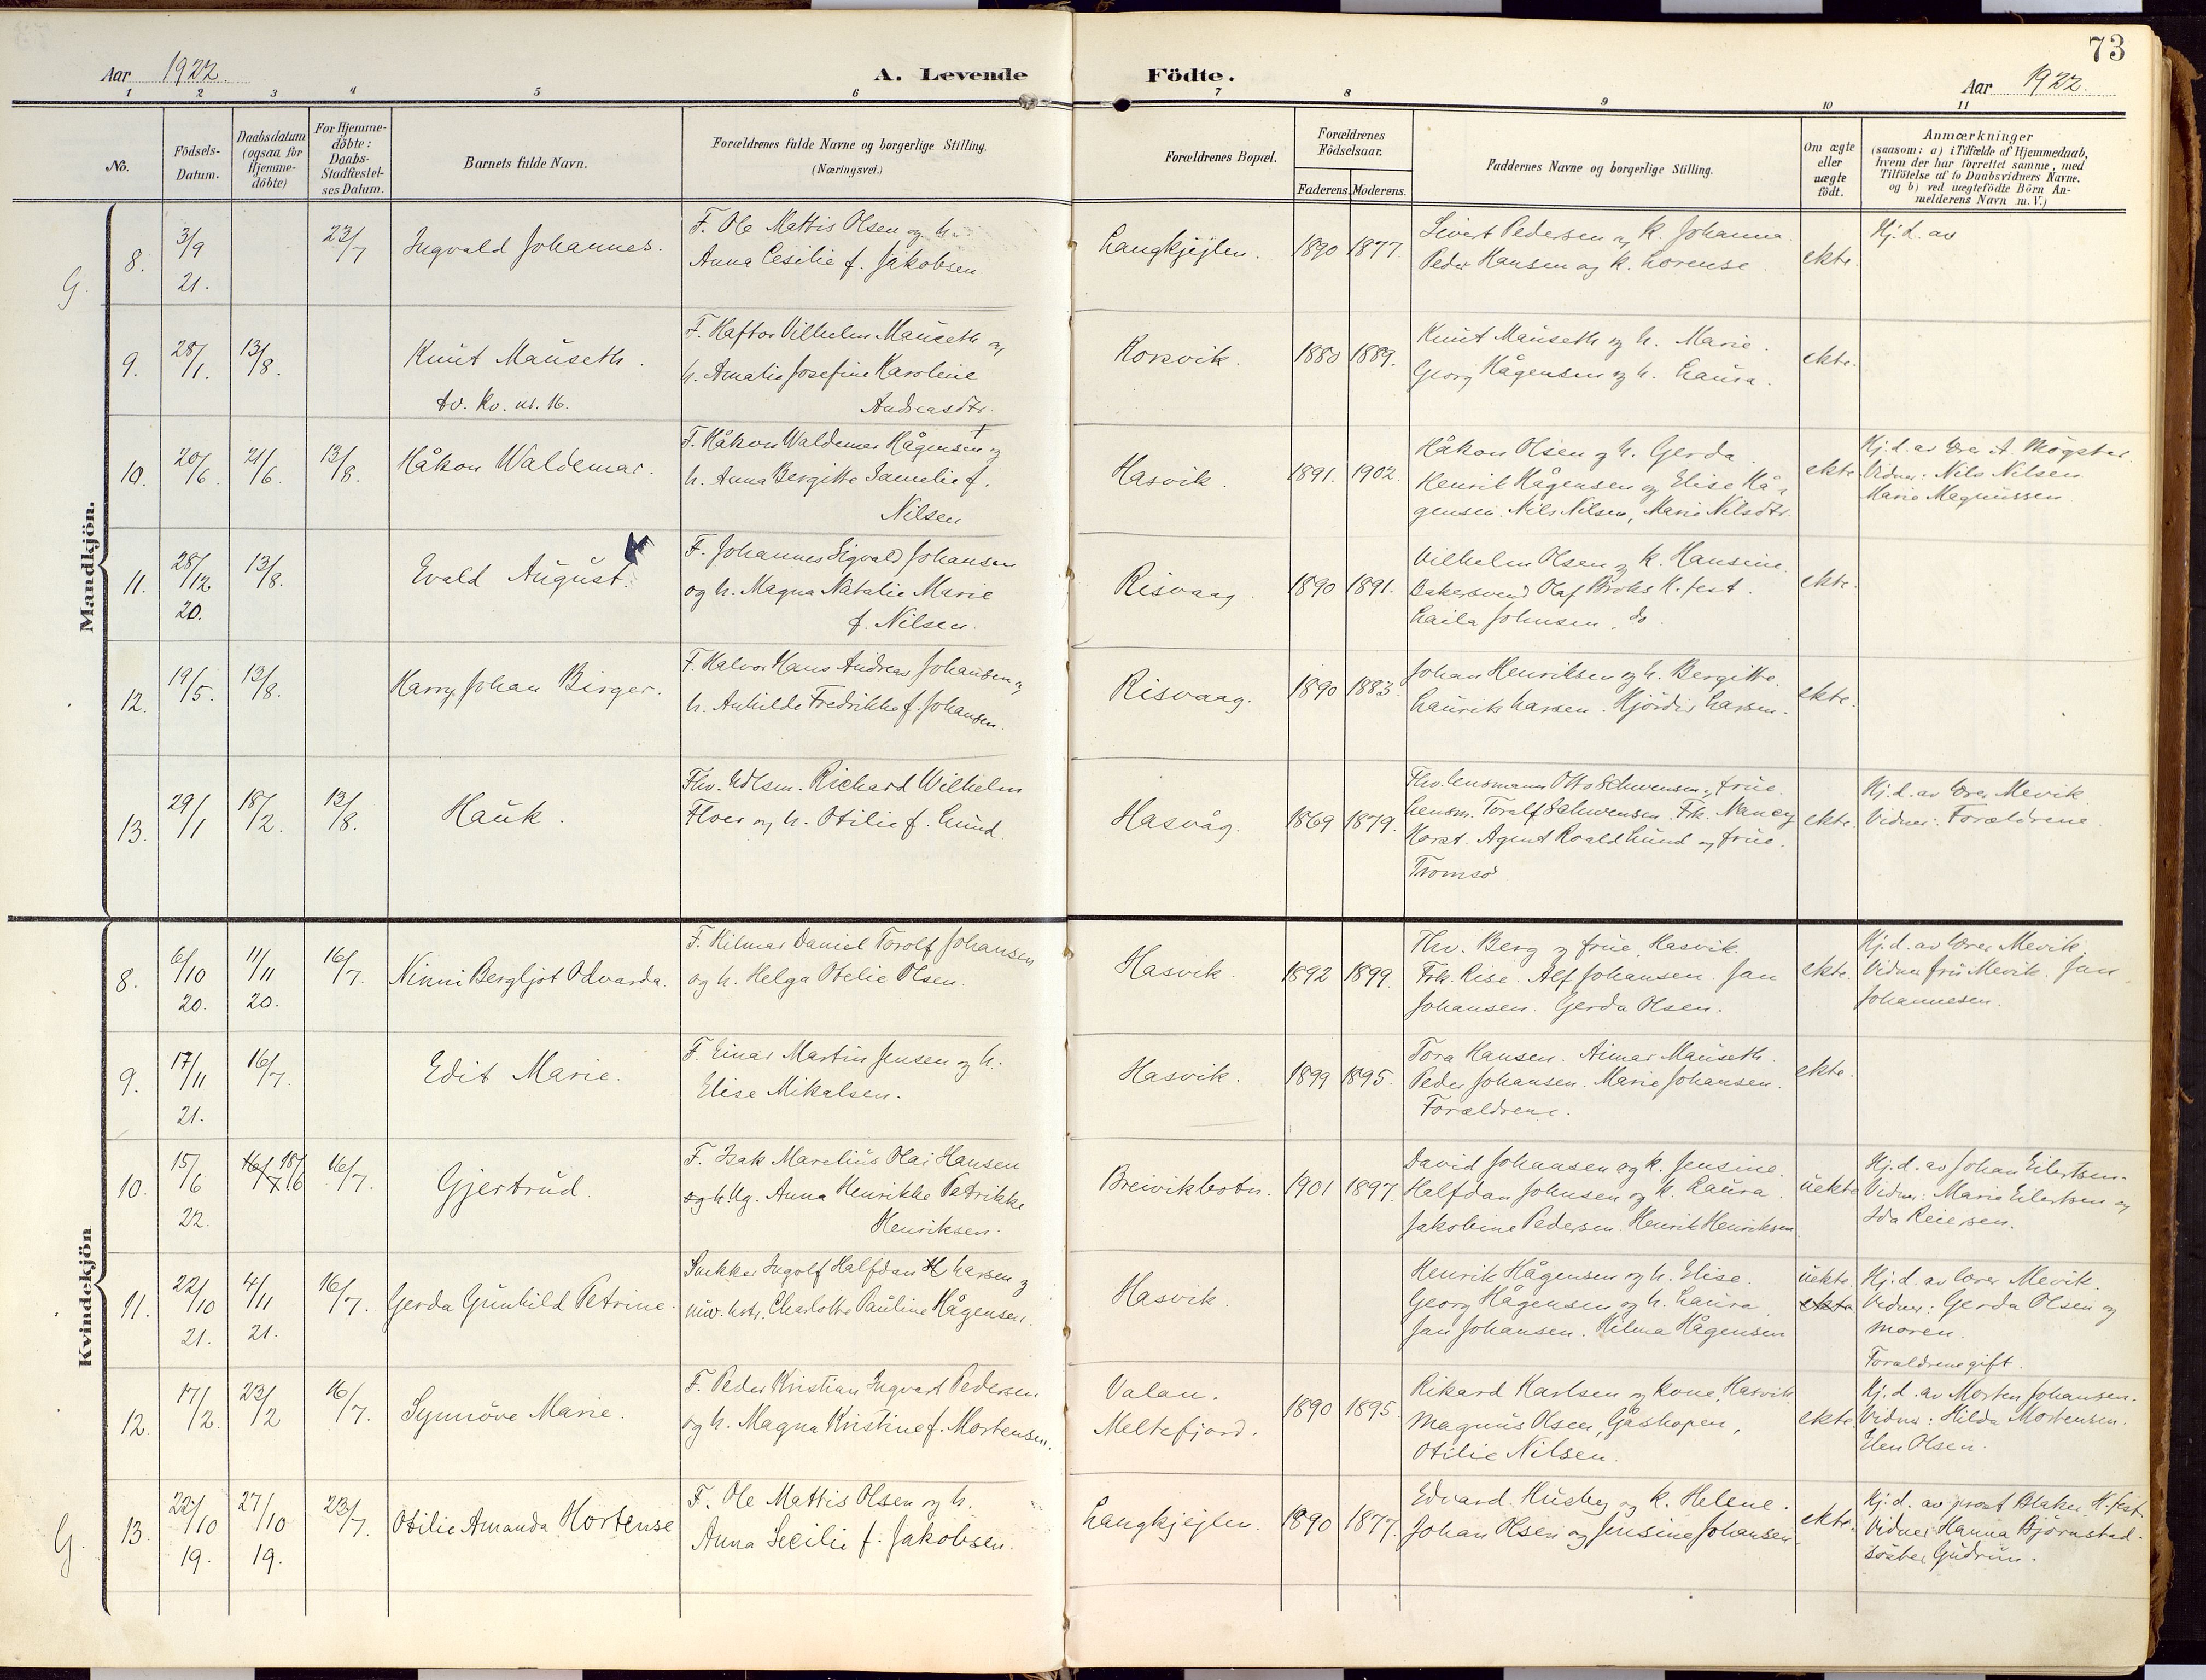 73
Aar 1922.
A. Levende Födte.
Aar 1922.
1 2 3 4 5 6 7 8 9 10 11
No.
Födsels-Datum.
Daabsdatum (ogsaa for Hjemme-döbte)
For Hjemme-döbte: Daabs-Stadfæstel-ses Datum.
Barnets fulde Navn.
Forældrenes fulde Navne og borgerlige Stilling. (Næringsvei.)
Forældrenes Bopæl.
Forældrenes Födselsaar.
Faderens. Moderens.
Faddernes Navne og borgerlige Stilling.
Om ægte eller uægte födt.
Anmærkninger
(saasom: a) i Tilfælde af Hjemmedaab,
hvem der har forrettet samme, med
Tilföielse af to Daabsvidners Navne.
og b) ved uægtefödte Börn An-
melderens Navn m. V.)
Mandkjön.
G.
8. 3/9 21. 23/7 Ingvald Johannes.
F. Ole Mattis Olsen og h.
Anna Cesilie f. Jakobsen.
Langkjejlen. 1890 1877.
Sivert Pedersen og k. Johanna.
Peder Hansen og k. Lorense.
ekte.
Hj. d. av
9. 28/1. 13/8. Knut Mauseth.
tv. kv. nr. 16.
F. Haftor Vilhelm Mauseth og
h. Amalie Josefine Karoline
Andreasdtr.
Korsvik. 1880 1889.
Knut Mauseth og h. Marie.
Georg Hågensen og h. Laura.
ekte.
10. 20/6. 21/6. 13/8. Håkon Waldemar.
F. Håkon Waldemar Hågensen og
h. Anna Bergitte Samelie f.
Nilsen
Hasvik. 1891. 1902.
Håkon Olsen og h. Gerda.
Henrik Hågensen og Elise Hå-
gensen. Nils Nilsen, Marie Nilsdtr.
ekte
Hj. d. av lærer A. Møgster.
Vidner: Nils Nilsen
Marie Magnussen.
11. 28/12 20. 13/8. Evald August.
F. Johannes Sigvald Johansen
og h. Magna Natalie Marie
f. Nilsen.
Risvaag. 1890 1891.
Vilhelm Olsen og k. Hansine.
Bakersvend Olaf Broks H.fest.
Laila Johnsen, do.
ekte.
12. 19/5. 13/8. Harry Johan Birger.
F. Halvor Hans Andreas Johansen og
h. Anhilde Fredrikke f. Johansen.
Risvaag. 1890 1883.
Johan Henriksen og h. Bergitte.
Laurits Larsen. Hjördis Larsen.
ekte.
13. 29/1 18/2. 13/8. Hauk.
Fhv. Hdlsm. Richard Wilhelm
Floer og h. Otilie f. Lund.
Hasvåg. 1869 1879.
Fhv. Lensmann Otto Schwensen og frue.
Lensm. Toralf Schwensen. Frk. Nancy
Horst. Agent Roald Lund og frue.
Tromsø
ekte.
Hj. d. av lærer Mevik.
Vidner: Forældrene.
Kvindekjön
8. 6/10 20. 11/11 20. 16/7. Ninni Bergljot Odvarda.
F. Hilmar Daniel Torolf Johansen
og h. Helga Otelie Olsen.
Hasvik. 1892 1899.
Fhv. Berg og frue, Hasvik.
Frk. Rise. Alf Johansen. Jan
Johansen. Gerda Olsen.
ekte.
Hj. d. av lærer Mevik.
Vidner fru Mevik. Jan
Johannesen.
9. 17/11 21. 16/7. Edit Marie.
F. Einar Martin Jensen og h.
Elise Mikalsen.
Hasvik. 1899 1895.
Tora Hansen. Aimar Mauseth.
Peder Johansen. Marie Johansen.
Forældrene.
ekte.
10. 15/6 22. 16/7 18/6 16/7. Gjertrud.
F. Isak Marelius Olai Hansen
og h. Ug. Anna Henrikke Petrikke
Henriksen.
Breivikbotn. 1901 1897.
David Johansen og k. Jensine.
Halfdan Johnsen og k. Laura.
Jakobine Pedersen. Henrik Henriksen
uekte
Hj. d. av Johan Eilertsen.
Vidner: Marie Eilertsen og
Ida Reiersen.
11. 22/10 21. 4/11 21. 16/7. Gerda Gunhild Petrine.
Snekker Ingolf Halfdan H Larsen og
Charlotte Pauline Hågensen.
Hasvik.
Henrik Hågensen og h. Elise.
Georg Hågensen og h. Laura.
Jan Johansen. Hilma Hågensen
uekte.
ekte
Hj. d. av lærer Mevik.
Vidner: Gerda Olsen og
moren.
Forældrene gift.
12. 17/2. 23/2 16/7. Synnöve Marie.
F. Peder Kristian Ingvart Pedersen
og h. Magna Kristine f. Mortensen.
Valan.
Meltefjord.
1890 1895.
Rikard Karlsen og kone, Hasvik
Magnus Olsen, Gåshopen,
Otilie Nilsen.
ekte.
Hj. d. av Morten Johansen.
Vidner: Hilda Mortensen.
Elen Olsen.
G.
13. 22/10 19. 27/10 19. 23/7. Otilie Amanda Hortense
F. Ole Mattis Olsen og h.
Anna Secilie f. Jakobsen.
Langkjejlen. 1890 1877.
Edvard Husby og k. Helene.
Johan Olsen og Jensine Johansen.
ekte.
Hj. d. av prost Blaker H.fest
Vidner Hanna Björnstad.
søster Gudrun.